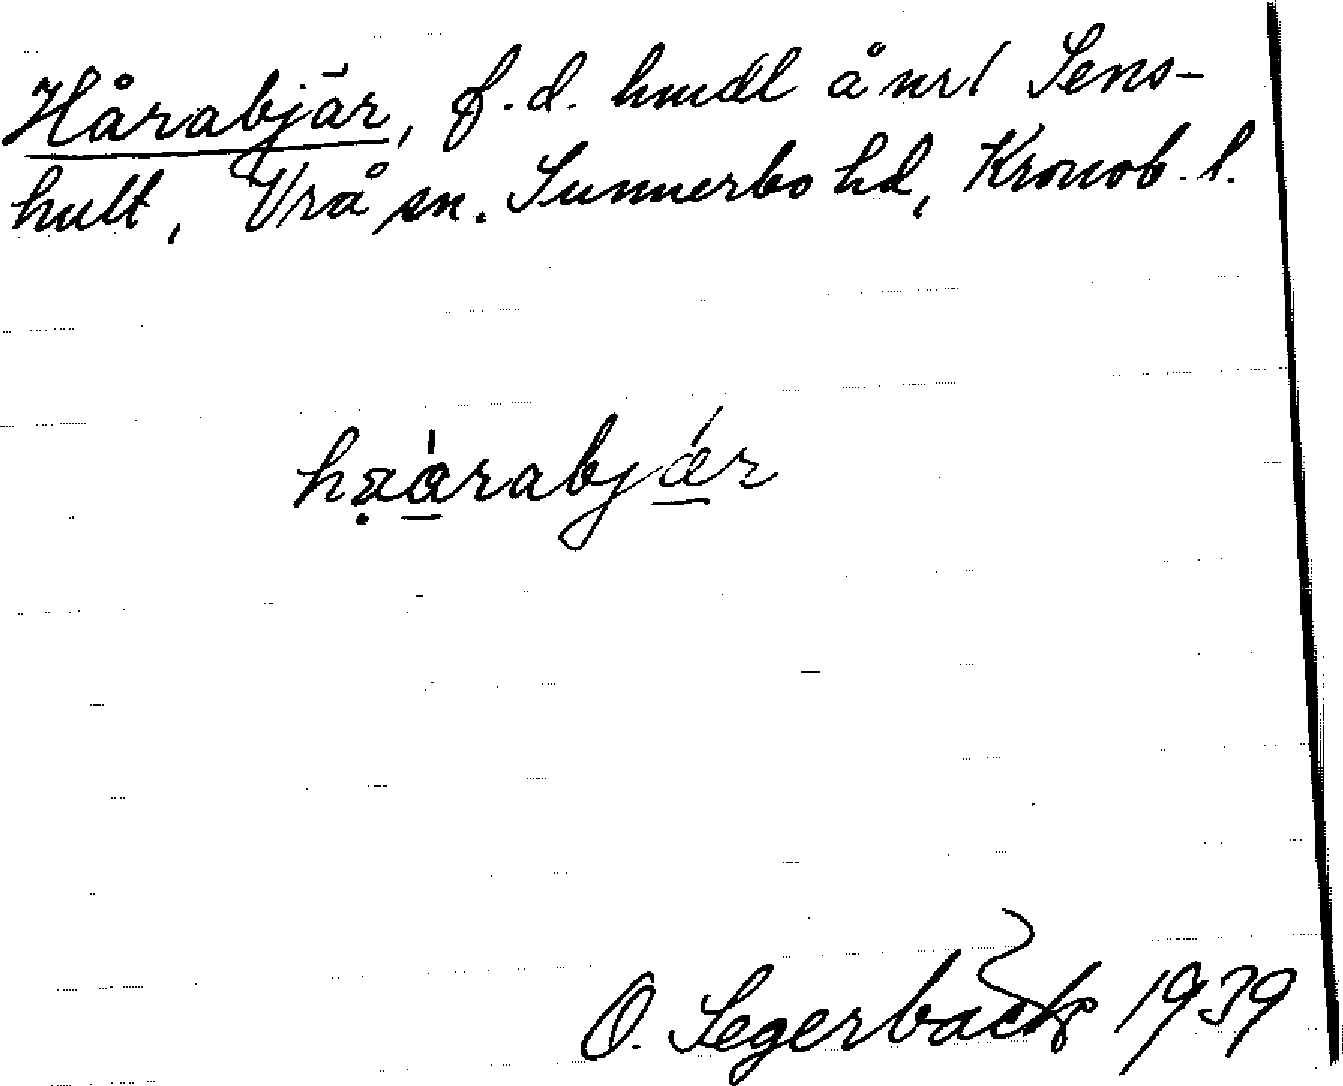 Hårabjär, f.d. hmdl å nr 1 Sens-
hult, Vrå sn. Sunnerbo hd, Kronob. l.
O. Segerbäck 1939